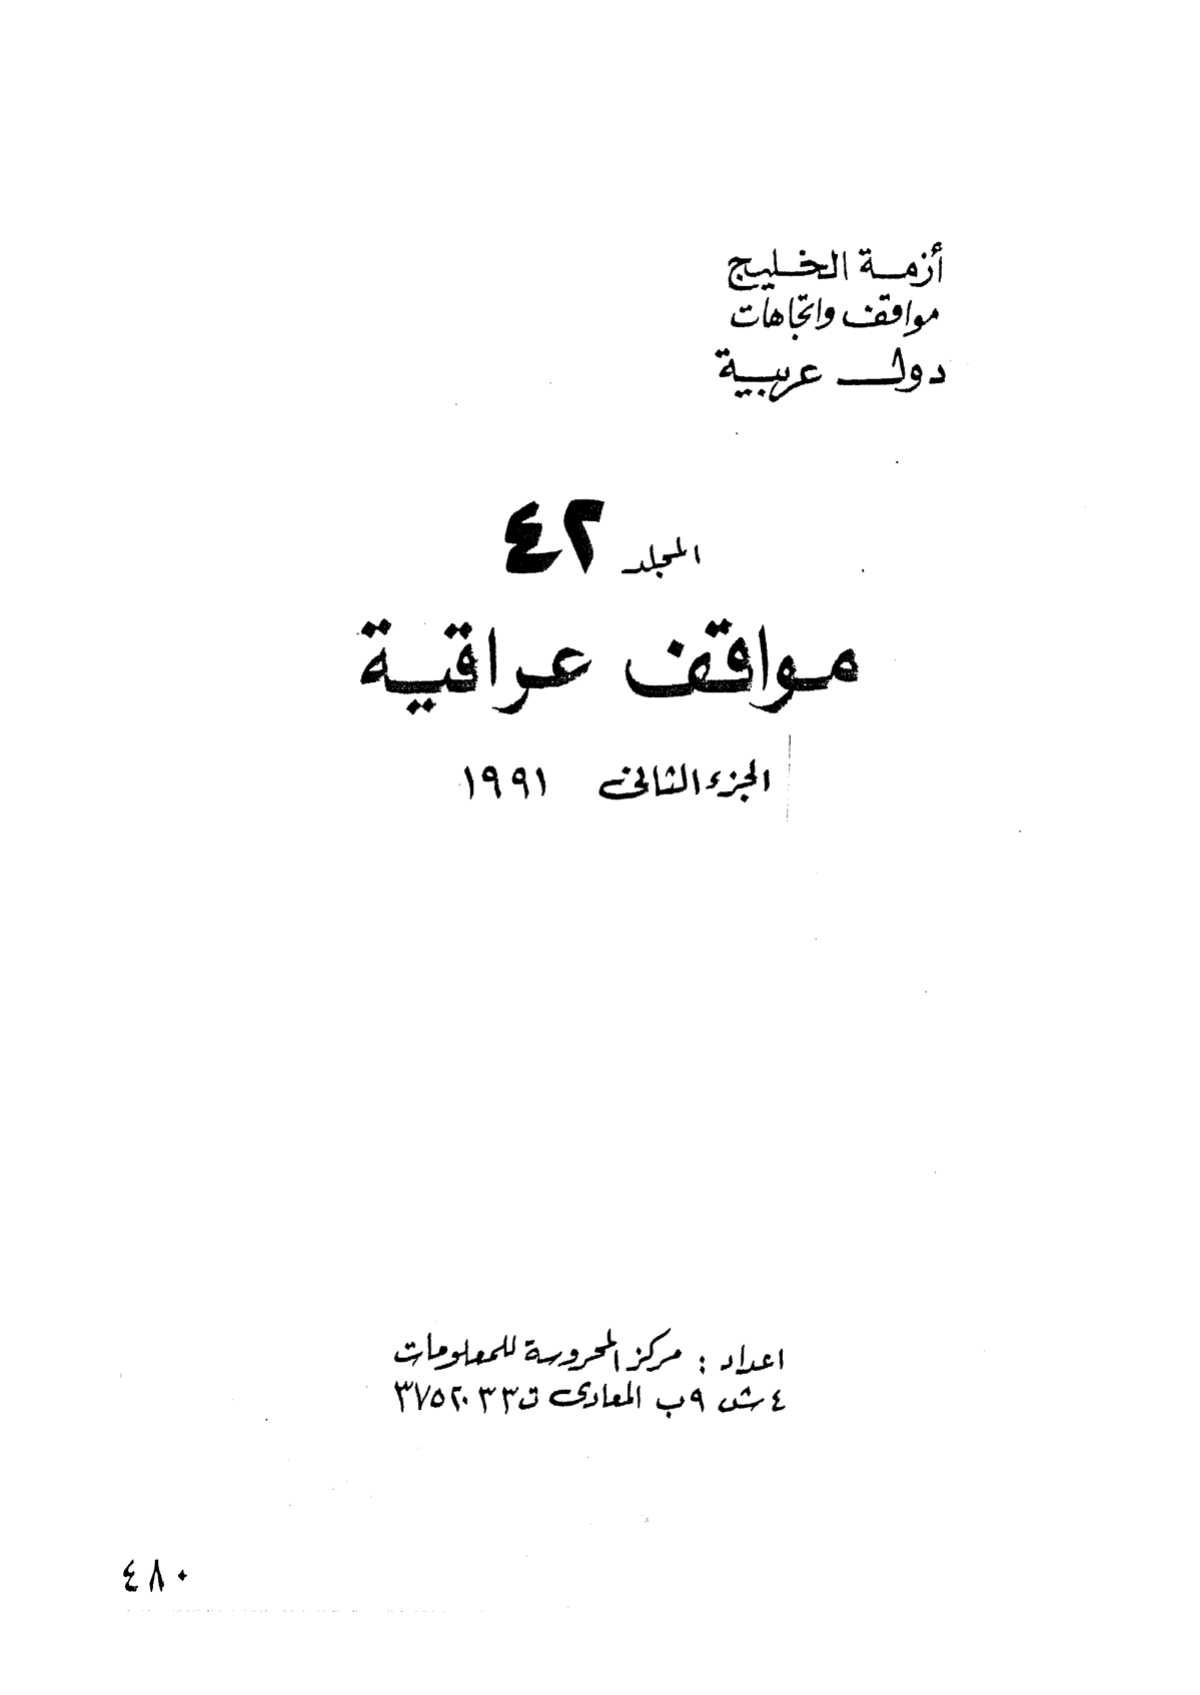 أزمة الخليج
مواقف واتجاهات
دول عربية
المجلد ٤٢
مواقف عراقية
الجزء الثانى ١٩٩١
اعداد : مركز المحروسة للمعلومات
٤ ش ٩ب المعادى ت ٣٧٥٢٠٣٣
٤٨٠